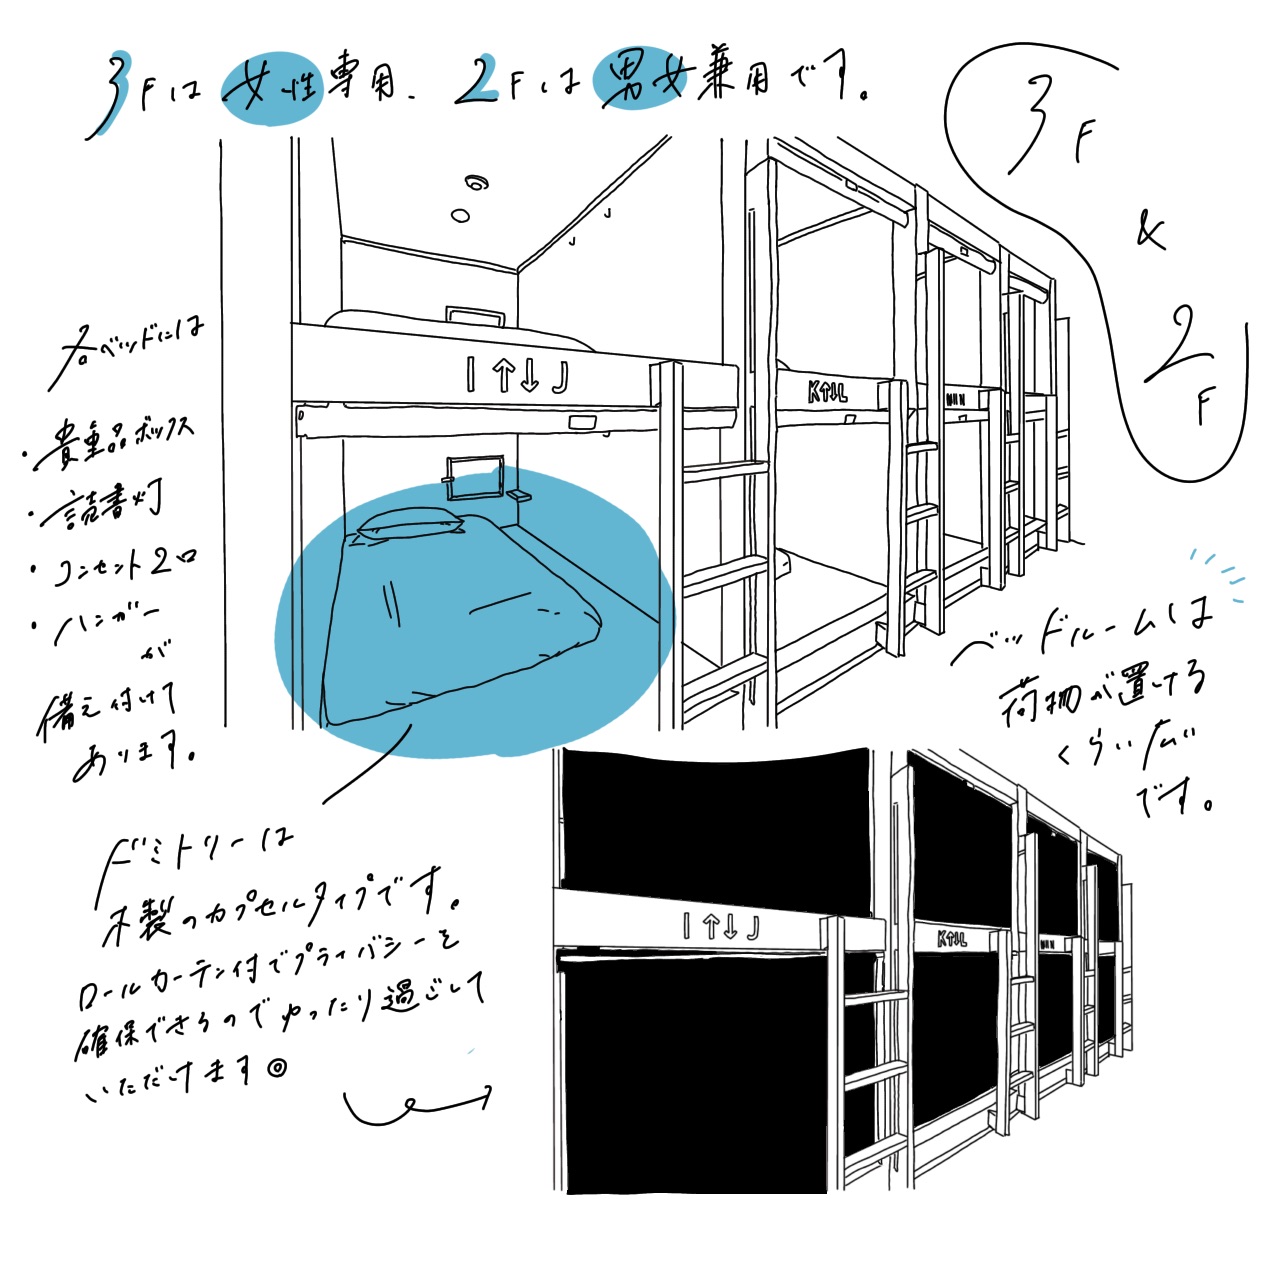 3Fは女性専用、2Fは男女兼用です。
3F
&
2F
各ベッドには
・貴重品ボックス
・読書灯
・コンセント2口
・ハンガー
が
備え付けて
あります。
I↑↓J
K↑↓L
ベッドルームは
荷物が置ける
くらい広い
です。
ドミトリーは
木製のカプセルタイプです。
ロールカーテン付でプライバシーを
確保できるのでゆったり過ごして
いただけます◎
I↑↓J
K↑↓L